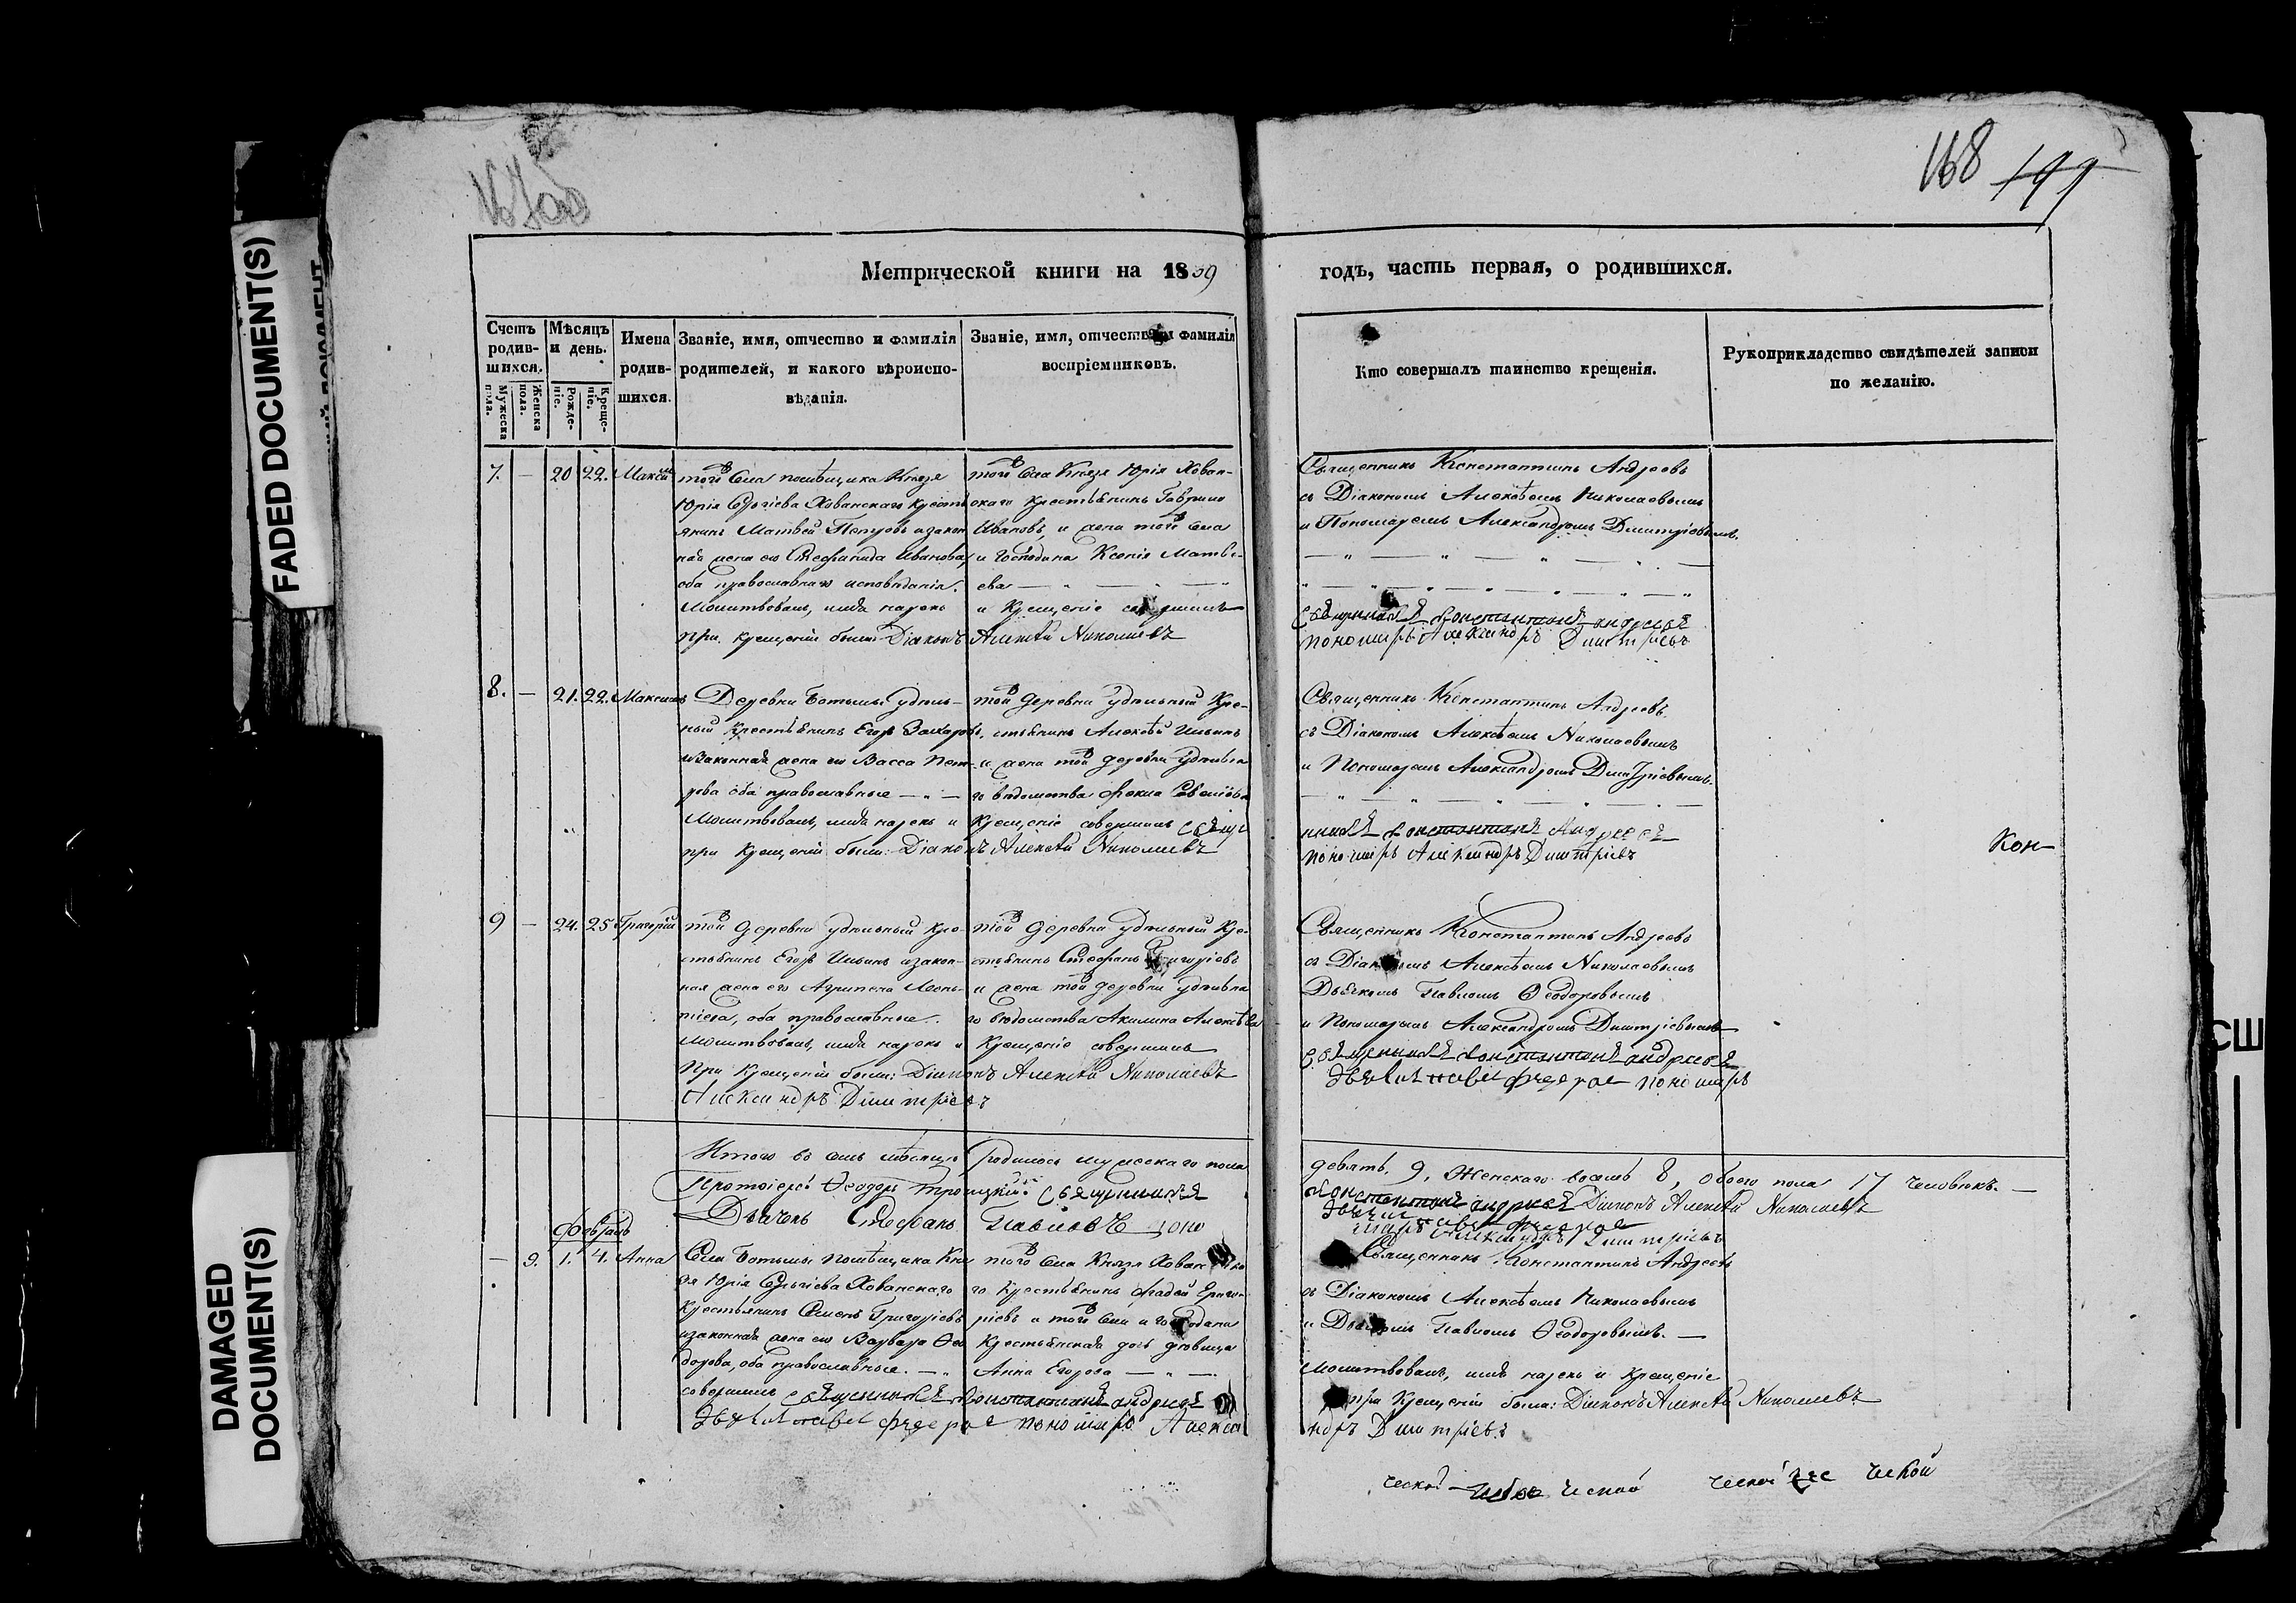 FADED DOCUMENT(S)
DAMAGED DOCUMENT(S)
168 199
Метрической книги на 1839 годъ, часть первая, о родившихся.
Счетъ родив-шихся.
Мужеска пола.
Женска пола.
Мѣсяцъ и день.
Рожде-ніе.
Креще-ніе.
Имена родив-шихся.
Званіе, имя, отчество и фамилія родителей, и какого вѣроиспо-вѣданія.
Званіе, имя, отчество и фамилія воспріемниковъ.
Кто совершалъ таинство крещенія.
Рукоприкладство свидѣтелей записи по желанію.
7. — 20 22. Максим
того Села помѣщика Князя
Юрія Сергіева Хованскаго кресть
янинъ Матвей Петровъ изакон
ная жена его Стефанида Иванова
оба православнаго исповѣданія.
Молитвовалъ, имя нарекъ
при крещеніи были: Діаконъ
того Села Князя Юрія Хован-
скаго крестьянинъ Гаврило
Ивановъ, и жена того Села
и Господина Ксенія Матвѣ-
ева
и Крещеніе совершилъ
Алексѣй Николаевъ
Священникъ Константинъ Андреевъ
съ Діакономъ Алексѣемъ Николаевымъ
и Пономаремъ Александромъ Димитріевымъ.
Священникъ Константинъ Андреевъ
пономарь Александръ Димитріевъ
8. — 21. 22. Максимъ
Деревни Ботьмы удѣль-
ный крестьянинъ Егоръ Захаровъ,
изаконная жена его Васса Пет-
рова оба православные
Молитвовалъ, имя нарекъ и
при Крещеніи были: Діако
той деревни удѣльный Кре-
стьянинъ Алексѣй Ильинъ
и жена той деревни удѣльна
го вѣдомства Фекла Савеліева
Крещеніе совершилъ Свящи
нъ Алексѣй Николаевъ
Священникъ Константинъ Андреевъ
съ Діакономъ Алексѣемъ Николаевымъ
и Пономаремъ Александромъ Димитріевымъ.
никъ Константинъ Андреевъ
пономарь Александръ Димитріевъ
Кон-
9 — 24. 25 Григорій
той деревни удѣльный кре-
стьянинъ Егоръ Ильинъ изакон-
ная жена его Агрипена Леонь-
тіева, оба православные.
Молитвовалъ, имя нарекъ и
При Крещеніи были: Діако
Александръ Димитріевъ
той деревни удѣльный Кре-
стьянинъ Стефанъ Григоріевъ
и жена той деревни удѣльна
го вѣдомства Акилина Алексѣева
Крещеніе совершилъ
нъ Алексѣй Николаевъ
Священникъ Константинъ Андреевъ
съ Діакономъ Алексѣемъ Николаевымъ
Дьячкомъ Павломъ Ѳеодоровымъ
и Пономаремъ Александромъ Димитріевымъ
Священникъ Константинъ Андреевъ
пономарь
Итого въ семъ мѣсяцѣ родилось мужескаго пола девять, 9, Женскаго восемь 8, обоего пола 17 человѣкъ.
Протоіерей Ѳеодоръ Троицкій. Священникъ Константинъ Андреевъ Діаконъ Алексѣй Николаевъ
Дьячекъ Стефанъ Павловъ поно
марь Александръ Димитріевъ
Февраль
— 9. 1. 4. Анна
Села Ботьмы помѣщика Кня
зя Юрія Сергіева Хованскаго
Крестьянинъ Семенъ Григорьевъ
изаконная жена его Варвара Ѳео
дорова, оба православные.
совершилъ Священникъ Константинъ Андреевъ
пономарь Алекса
того Села Князя Хованска
го крестьянинъ Фадей Григо-
ріевъ и того Села и Господина
Крестьянская дочь дѣвица
Анна Егорова
Священникъ Константинъ Андреевъ
съ Діакономъ Алексѣемъ Николаевымъ
и Дьячкомъ Павломъ Ѳеодоровымъ.
Молитвовалъ, имя нарекъ и Крещеніе
при Крещеніи были: Діаконъ Алексѣй Николаевъ
ндръ Димитріевъ
ческой ческой ческой ческой